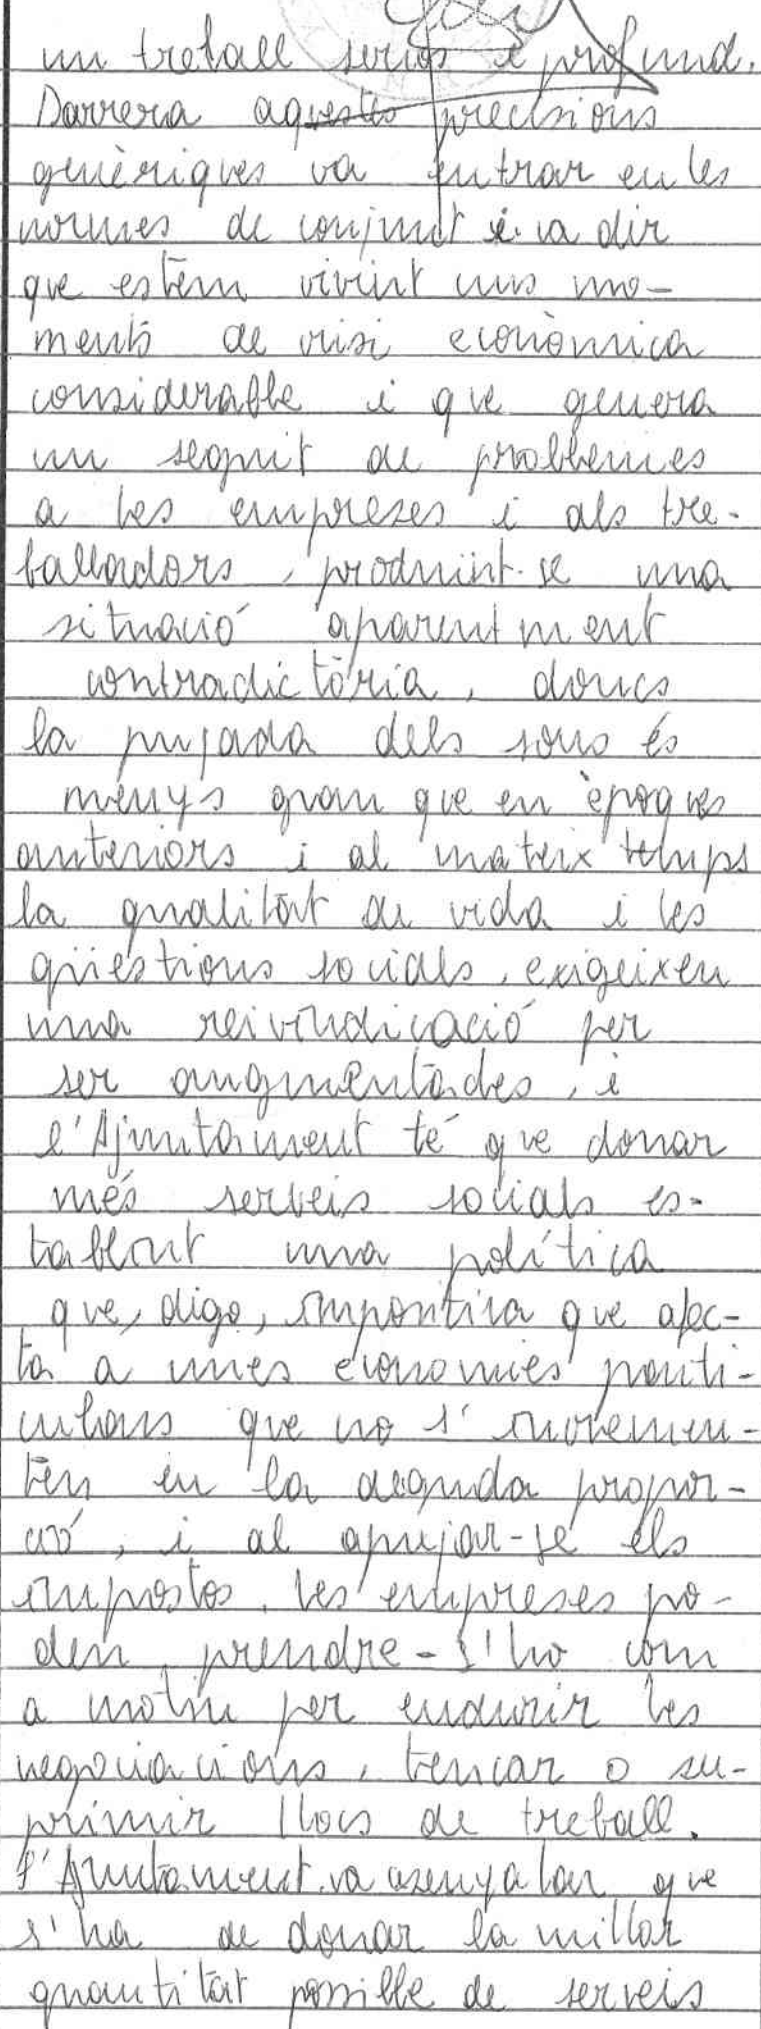 un treball seriós i profund.
Darrera aquestes precisions
genèriques va entrar en les
normes de conjunt i va dir
que estem vivint uns mo-
ments de crisi econòmica
considerable i que genera
un seguit de problemes
a les empreses i als tre-
balladors, produint-se una
situació aparentment
contradictòria, doncs
la pujada dels sous és
menys gran que en èpoques
anteriors i al mateix temps
la qualitat de vida i les
qüestions socials, exigeixen
una reivindicació per
ser augmentades, i
l'Ajuntament té que donar
més serveis socials es-
tablint una política
que, digo, impositiva que afec-
ta a unes economies parti-
culars que no s'incremen-
ten en la deguda propor-
ció, i al apujar-se els
impostos, les empreses po-
den prendre-s'ho com
a motiu per endurir les
negociacions, tencar o su-
primir llocs de treball.
L'Ajuntament va assenyalar que
s'ha de donar la millor
quantitat possible de serveis